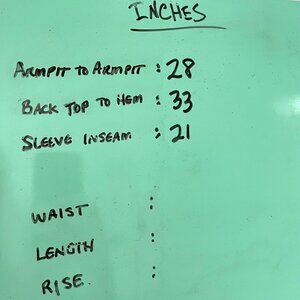 INCHES
ARMPIT TO ARMPIT : 28
BACK TOP TO HEM : 33
SLEEVE INSEAM : 21
WAIST :
LENGTH :
RISE :